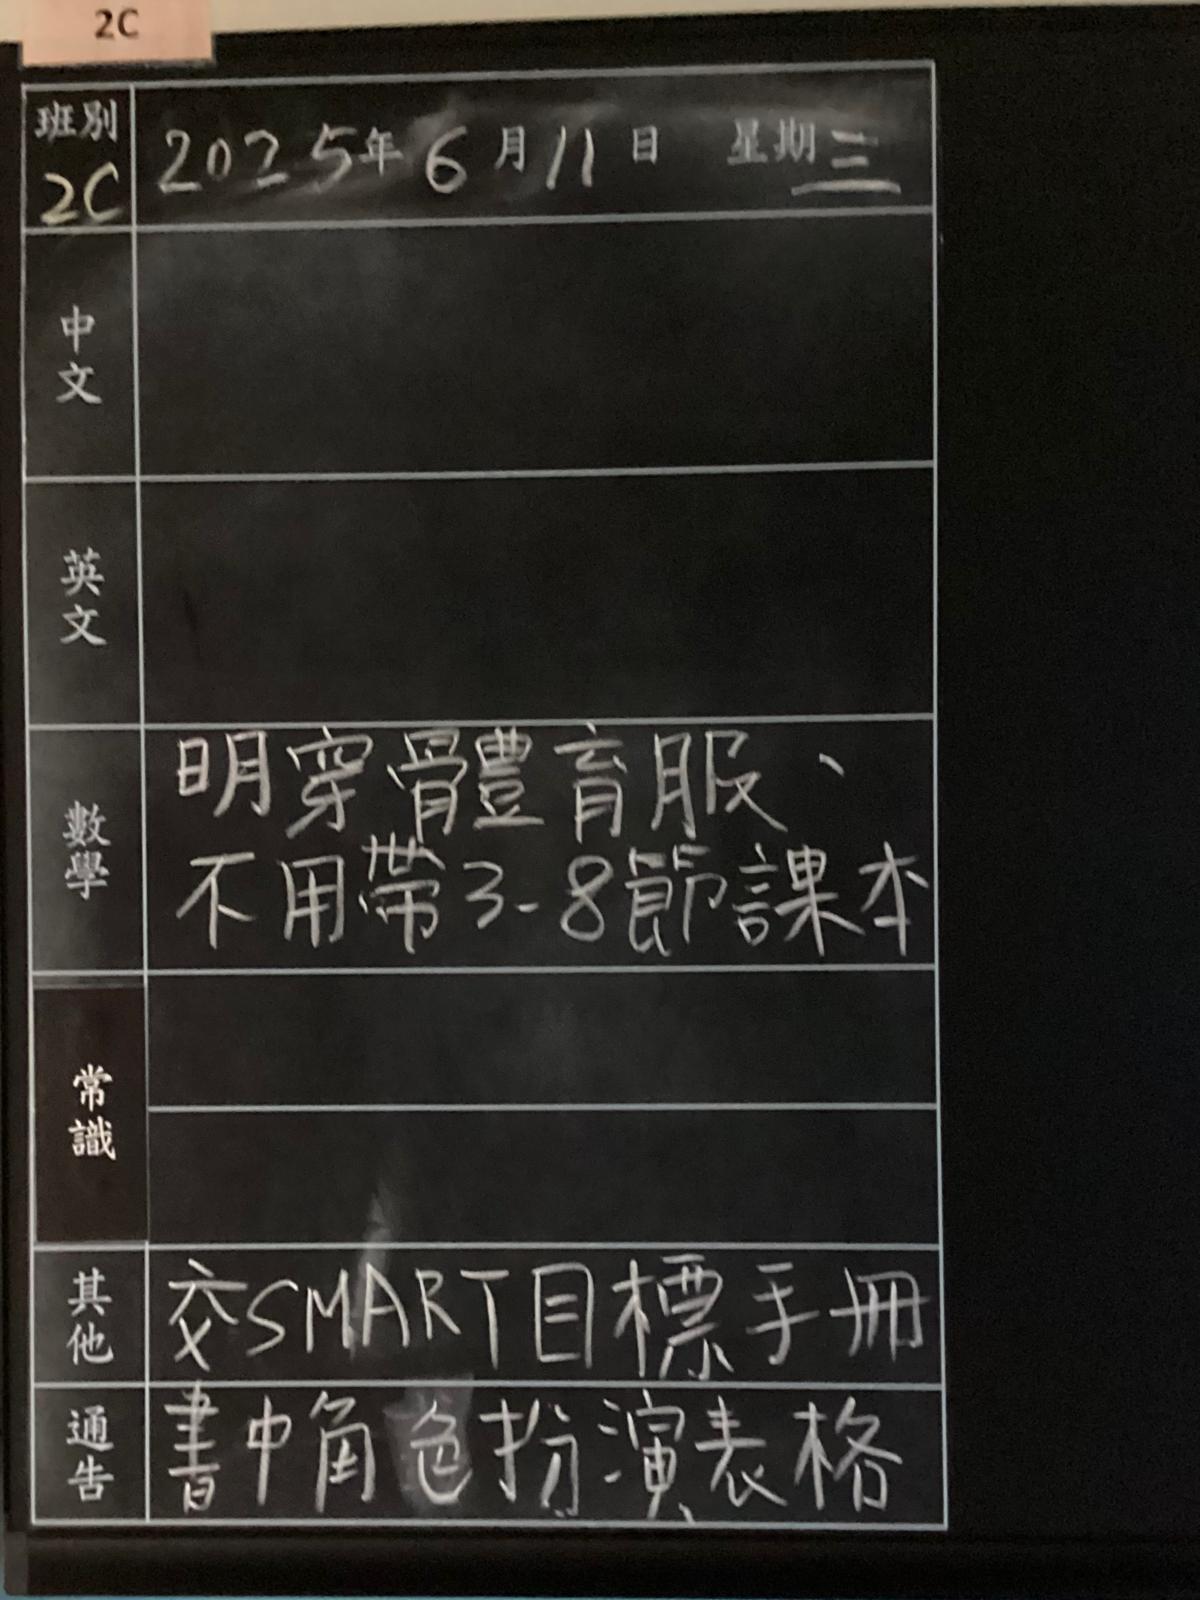 2C
班別
2C
2025年6月11日 星期三
中文
英文
數學
明穿體育服、
不用帶3-8節課本
常識
其他
交SMART目標手冊
通告
書中角色扮演表格